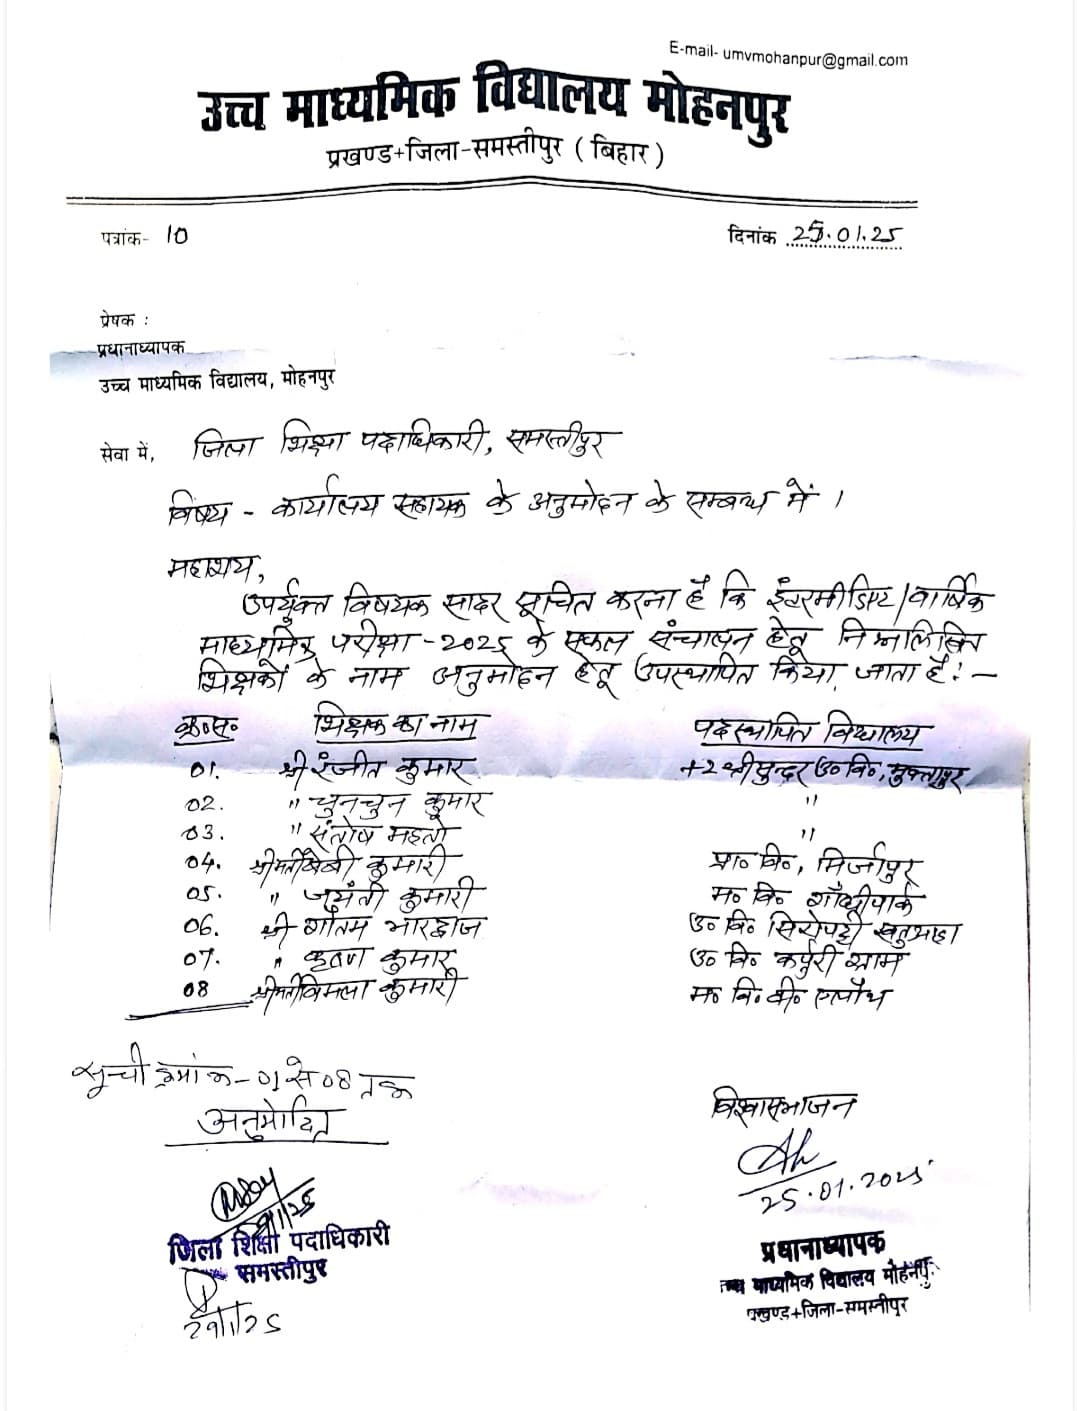 E-mail- umvmohanpur@gmail.com
उच्च माध्यमिक विद्यालय मोहनपुर
प्रखण्ड+जिला-समस्तीपुर ( बिहार )
पत्रांक- 10
दिनांक 25.01.25
प्रेषक :
प्रधानाध्यापक
उच्च माध्यमिक विद्यालय, मोहनपुर
सेवा में, जिला शिक्षा पदाधिकारी, समस्तीपुर
विषय - कार्यालय सहायक के अनुमोदन के सम्बन्ध में ।
महाशय,
उपर्युक्त विषयक सादर सूचित करना है कि इंटरमीडिएट/वार्षिक
माध्यमिक परीक्षा-2025 के सफल संचालन हेतू निम्नलिखित
शिक्षकों के नाम अनुमोदन हेतू उपस्थापित किया जाता है:-
क्र०स० शिक्षक का नाम पदस्थापित विद्यालय
01. श्री रंजीत कुमार +2 श्री सुन्दर उ० वि०, मुक्तापुर
02. " चुनचुन कुमार "
03. " संतोष महतो "
04. श्रीमती बेबी कुमारी प्रा० वि०, मिर्जापुर
05. " जयंती कुमारी म० वि० गाँधीपार्क
06. श्री गौतम भारद्वाज उ० वि० सिरोपट्टी खतुआहा
07. " कृष्ण कुमार उ० वि० कर्पूरी ग्राम
08 श्रीमती विमला कुमारी म० वि० वी०
सूची क्रमांक-01 से 08 तक
अनुमोदित
विश्वासभाजन
25.01.2025
जिला शिक्षा पदाधिकारी
समस्तीपुर
29/1/25
प्रधानाध्यापक
उच्च माध्यमिक विद्यालय मोहनपुर
प्रखण्ड+जिला-समस्तीपुर